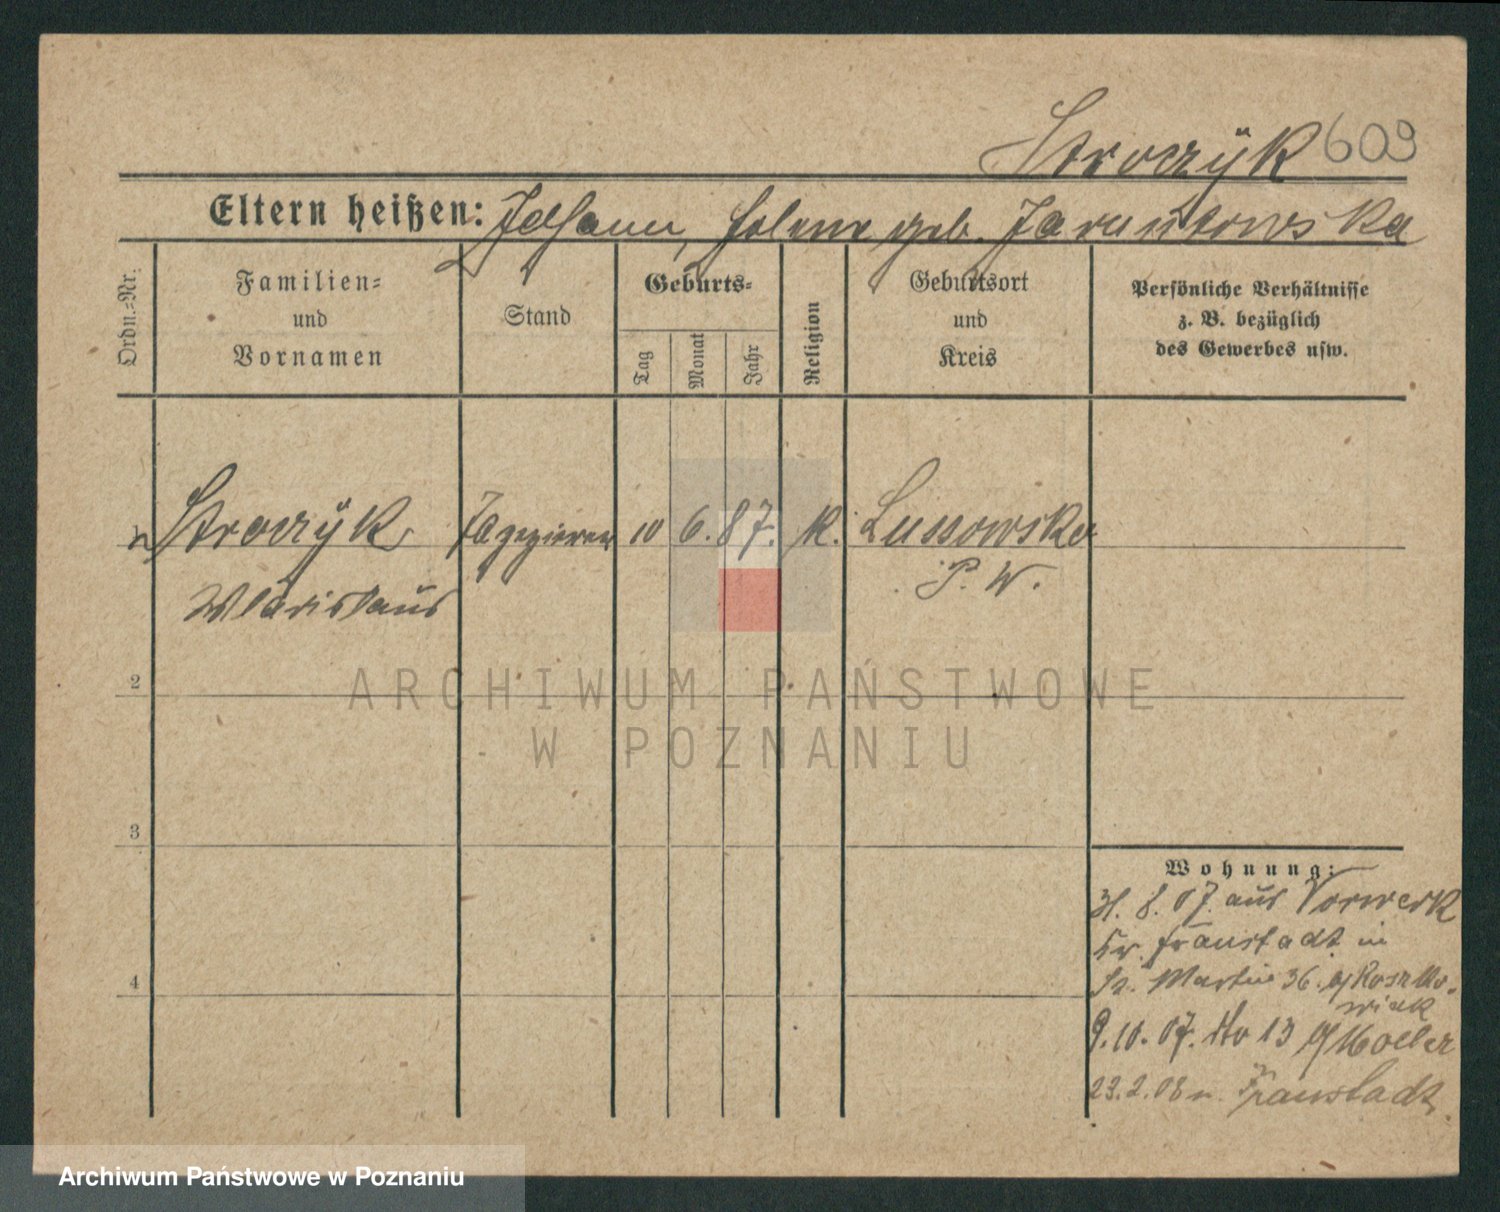 Stroczÿk 609
Eltern heißen: Johann, Helene geb. Jaruntowska
Ordn.-Nr.
Familien-
und
Vornamen
Stand
Geburts-
Tag
Monat
Jahr
Religion
Geburtsort
und
Kreis
Persönliche Verhältnisse
z. B. bezüglich
des Gewerbes usw.
Stroczÿk Tapezierer 10 6. 87. K. Lussowska
Wladislaus P. W.
ARCHIWUM PAŃSTWOWE
W POZNANIU
2
3
4
Wohnung:
31. 8. 07. aus Vorwerk
Kr. Fraustadt in
St. Martin 36. b/ Roszko-
wiak
9. 10. 07. No 13 b/
23. 2. 08 n. Fraustadt.
Archiwum Państwowe w Poznaniu